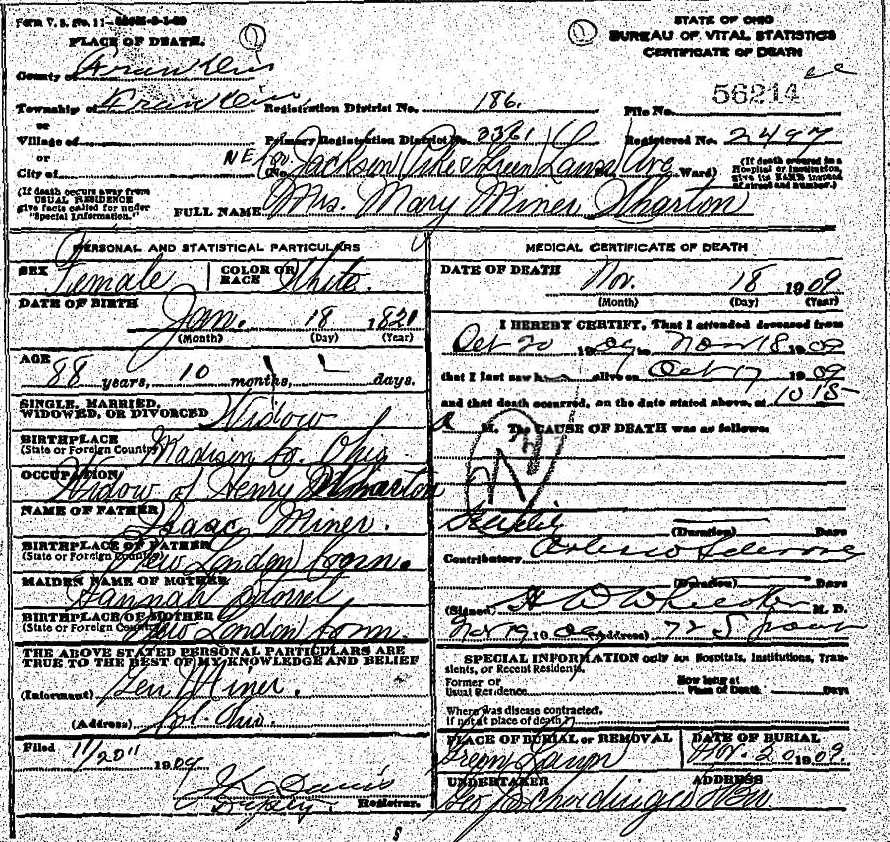 Form V. S. No. 11-
PLACE OF DEATH.
STATE OF OHIO
BUREAU OF VITAL STATISTICS
CERTIFICATE OF DEATH
County of Franklin
Township of Franklin Registration District No. 186. File No. 56214
or
Village of Primary Registration District No. 3361 Registered No. 2497
or
City of (No. NE Cor. Jackson Pike & Green Lawn Ave St. Ward) (If death occurred in a Hospital or Institution, give its NAME instead of street and number.)
(If death occurs away from USUAL RESIDENCE give facts called for under "Special Information.")
FULL NAME Mrs. Mary Miner Wharton
PERSONAL AND STATISTICAL PARTICULARS
SEX Female COLOR OR RACE White.
DATE OF BIRTH
Jan. 18 1821
(Month) (Day) (Year)
AGE
88 years, 10 months, days.
SINGLE, MARRIED, WIDOWED, OR DIVORCED Widow
BIRTHPLACE (State or Foreign Country) Madison Co. Ohio
OCCUPATION Widow of Henry Wharton
NAME OF FATHER Isaac Miner.
BIRTHPLACE OF FATHER (State or Foreign Country) New London Conn.
MAIDEN NAME OF MOTHER Hannah
BIRTHPLACE OF MOTHER (State or Foreign Country) New London Conn.
THE ABOVE STATED PERSONAL PARTICULARS ARE TRUE TO THE BEST OF MY KNOWLEDGE AND BELIEF
(Informant) Geo Miner.
(Address) Col. Ohio.
Filed 11/20 1909
J K Davis
Deputy. Registrar.
MEDICAL CERTIFICATE OF DEATH
DATE OF DEATH
Nov. 18 1909
(Month) (Day) (Year)
I HEREBY CERTIFY, That I attended deceased from
Oct 20 1909 to Nov 18 1909
that I last saw h alive on Oct 17 1909
and that death occurred, on the date stated above, at 10 15
a M. The CAUSE OF DEATH was as follows:
Senility
(Duration) Days
Contributory Arterio Sclerosis
(Duration) Days
(Signed) H W Wheeler M. D.
Nov 19 1909 (Address) 72 S
SPECIAL INFORMATION only for Hospitals, Institutions, Transients, or Recent Residents.
Former or Usual Residence How long at Place of Death Days
Where was disease contracted, If not at place of death?
PLACE OF BURIAL or REMOVAL DATE OF BURIAL
Green Lawn Nov. 20 1909.
UNDERTAKER ADDRESS
Geo J Schoedinger